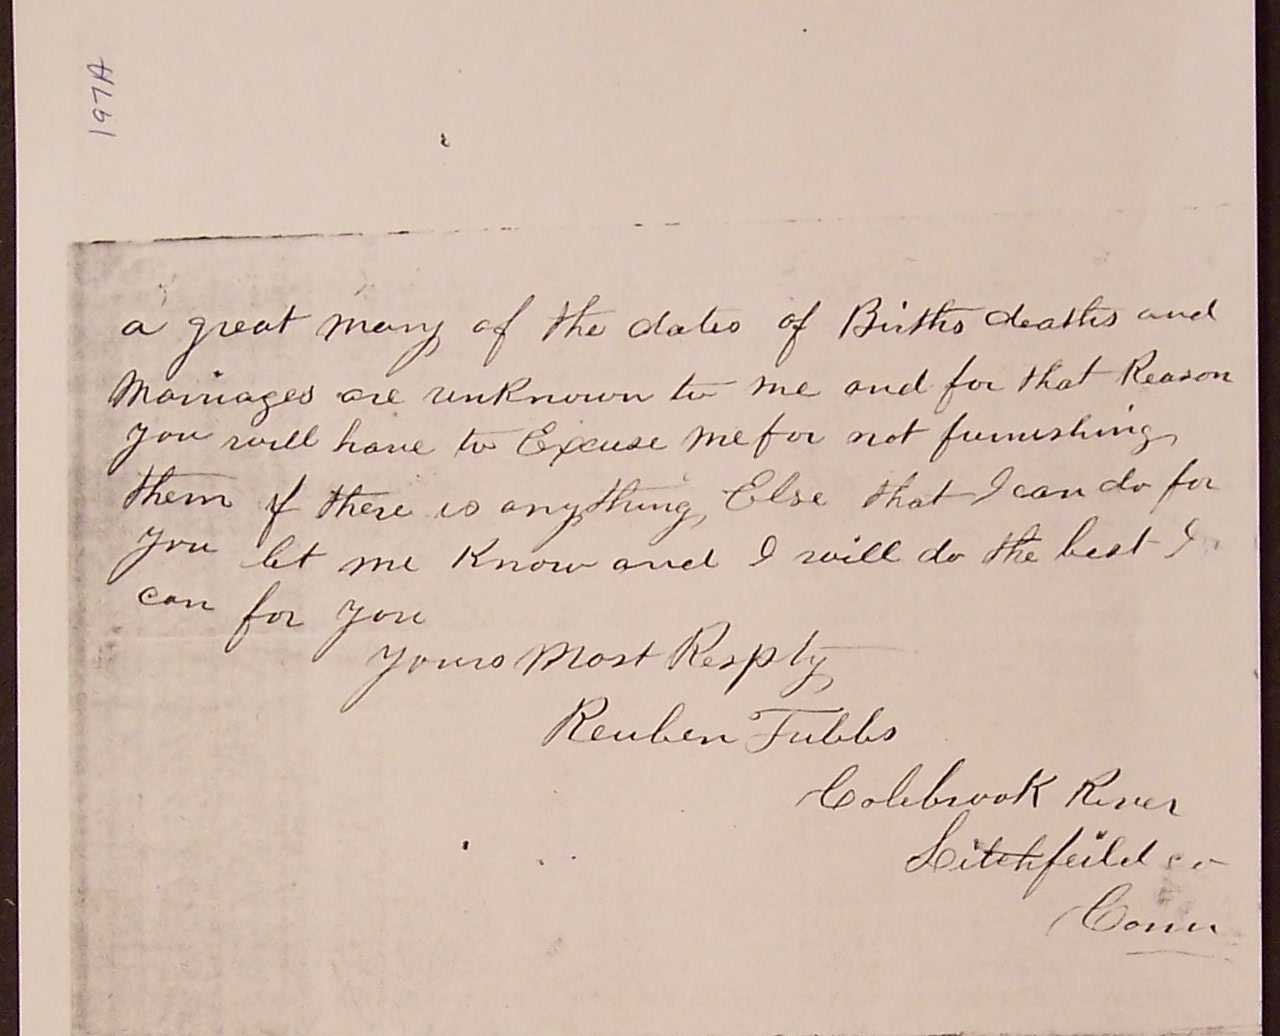 197H
a great many of the dates of Births deaths and
Marriages are unknown to me and for that Reason
you will have to Excuse me for not furnishing
them if there is anything Else that I can do for
you let me Know and I will do the best I
can for you
yours Most Resply
Reuben Tubbs
Colebrook River
Litchfeild co
Conn